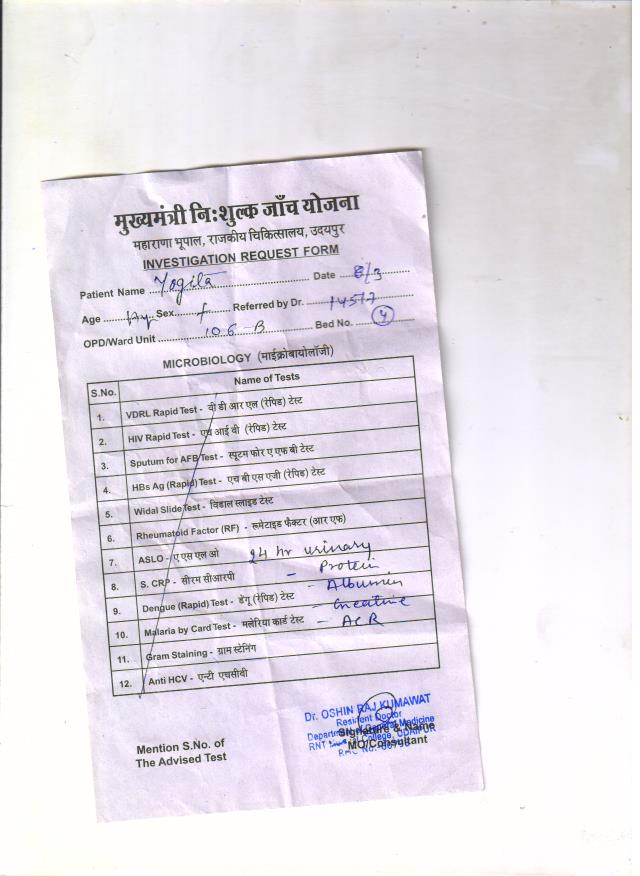 मुख्यमंत्री नि:शुल्क जाँच योजना
महाराणा भूपाल, राजकीय चिकित्सालय, उदयपुर
INVESTIGATION REQUEST FORM
Patient Name Yogita Date 8/3
Age Sex f Referred by Dr. 14517
OPD/Ward Unit 106-B Bed No. 4
MICROBIOLOGY (माईक्रोबायोलॉजी)
S.No. Name of Tests
1. VDRL Rapid Test - वी डी आर एल (रेपिड) टेस्ट
2. HIV Rapid Test - एच आई वी (रेपिड) टेस्ट
3. Sputum for AFB Test - स्पूटम फोर ए एफ बी टेस्ट
4. HBs Ag (Rapid) Test - एच बी एस एजी (रेपिड) टेस्ट
5. Widal Slide Test - विडाल स्लाइड टेस्ट
6. Rheumatoid Factor (RF) - रूमेटाइड फैक्टर (आर एफ)
7. ASLO - ए एस एल ओ 24 hr urinary
8. S. CRP - सीरम सीआरपी - Protein
9. Dengue (Rapid) Test - डेंगू (रेपिड) टेस्ट - Albumin
10. Malaria by Card Test - मलेरिया कार्ड टेस्ट - Creatine
- ACR
11. Gram Staining - ग्राम स्टेनिंग
12. Anti HCV - एन्टी एचसीबी
Dr. OSHIN RAJ KUMAWAT
Resident Doctor
Department of General Medicine
Signature & Name
RNT College, UDAIPUR
MO/Consultant
Mention S.No. of
The Advised Test